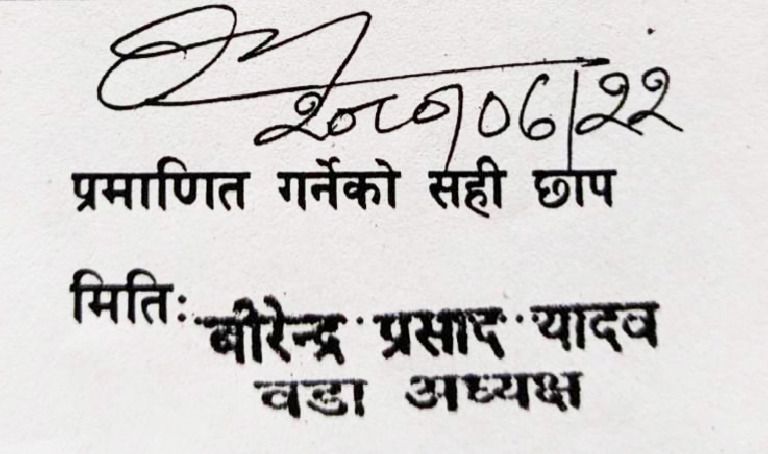 २०८१/०६/२२
प्रमाणित गर्नेको सही छाप
मितिः
बीरेन्द्र प्रसाद यादव
वडा अध्यक्ष